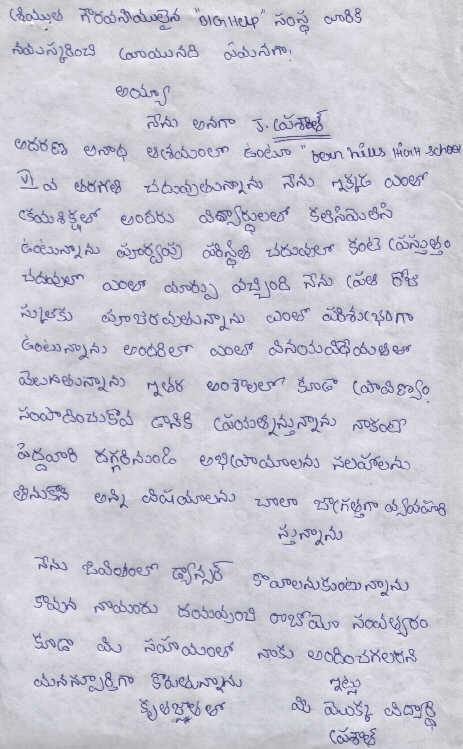 శ్రీయుత గౌరవనీయులైన "BIGHelp" సంస్థ వారికి
నమస్కరించి వ్రాయునది ఏమనగా!
అయ్యా
నేను అనగా J. ప్రశాంత్
ఆదరణ అనాథ ఆశ్రమంలో ఉంటూ "Don hills HIGH School
VI వ తరగతి చదువుతున్నాను నేను ఇక్కడ ఎంతో
క్రమశిక్షతో అందరు విద్యార్థులతో కలిసిమెలిసి
ఉంటున్నాను పూర్వపు పరిస్థితి చదువులో కంటే ప్రస్తుత్తం
చదువులో ఎంతో మార్పు వచ్చింది నేను ప్రతి రోజు
స్కూలుకు హాజరవుతున్నాను ఎంతో పరిశుభ్రంగా
ఉంటున్నాను అందరితో ఎంతో వినయవిధేయతతో
మెలుగుతున్నాను ఇతర అంశాలలో కూడా ప్రావిణ్యం
సంపాదించుకొవ డానికి ప్రయత్నిస్తున్నాను నాకంటె
పెద్దవారి దగ్గరినుండి అభిప్రాయాలను సలహాలను
తీసుకొని అన్ని విషయాలను చాలా జాగ్రత్తగా వ్యవహరి
స్తున్నాను
నేను జీవితంలో డ్యాన్సర్ కావాలనుకుంటున్నాను
కావున నాయందు దయవుంచి రాబోయే సంవత్సరం
కూడా మీ సహాయంతో నాకు అందించగలరని
మనస్ఫూర్తిగా కోరుతున్నాను ఇట్లు
కృతజ్ఞతతో మీ యొక్క విద్యార్థి
ప్రశాంత్